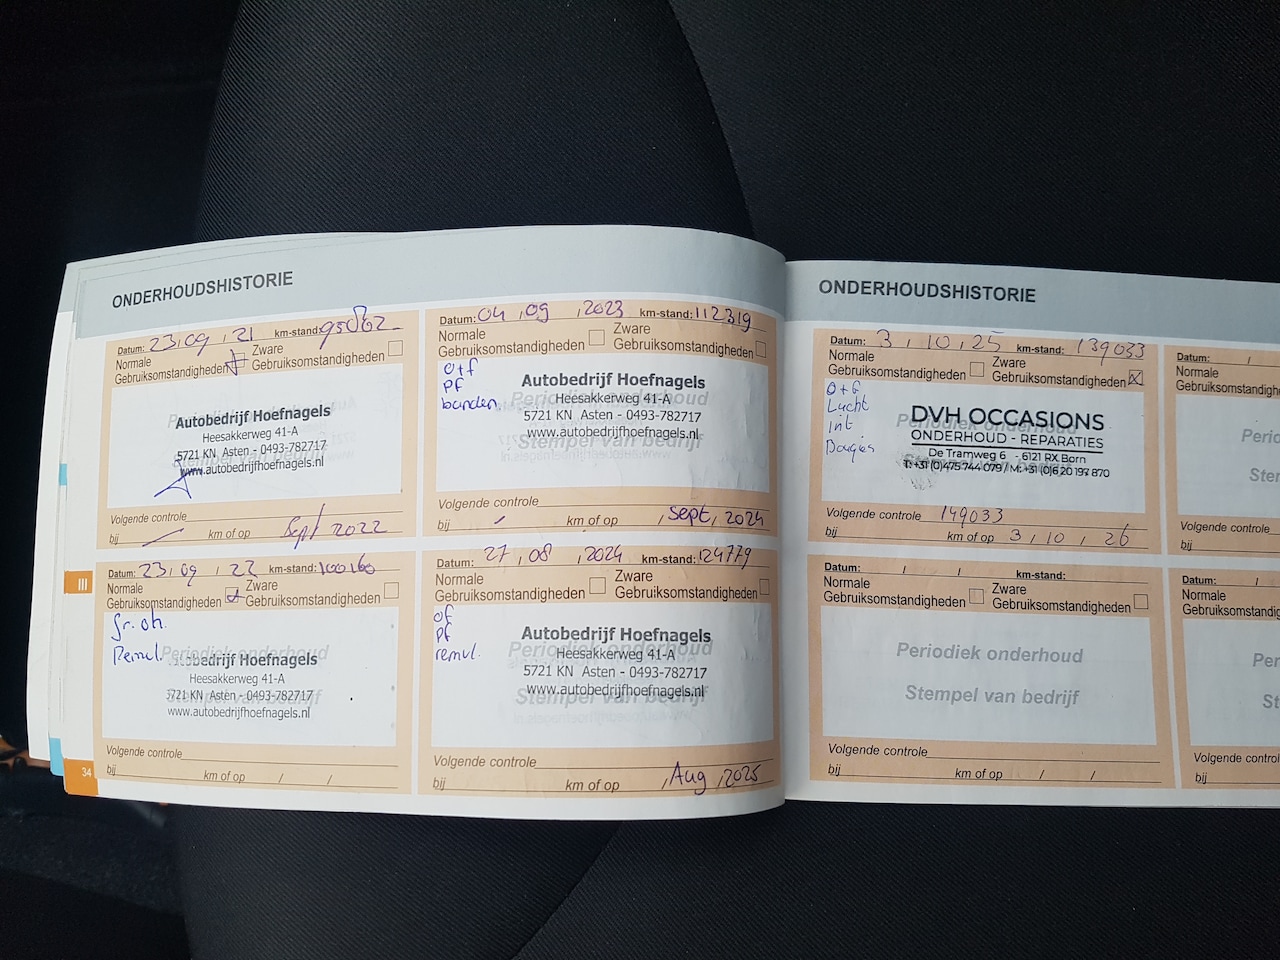 ONDERHOUDSHISTORIE
Datum: 23,09,21 km-stand: 95862
Normale Gebruiksomstandigheden Zware Gebruiksomstandigheden
Autobedrijf Hoefnagels
Heesakkerweg 41-A
5721 KN Asten - 0493-782717
www.autobedrijfhoefnagels.nl
Volgende controle
bij km of op Sept 2022
Datum: 23,09,22 km-stand: 100160
Normale
Gebruiksomstandigheden Zware Gebruiksomstandigheden
gr. oh.
Remvl.
Periodiek onderhoud
Autobedrijf Hoefnagels
Heesakkerweg 41-A
5721 KN Asten - 0493-782717
Stempel van bedrijf
www.autobedrijfhoefnagels.nl
Volgende controle
bij km of op / /
34
III
Datum: 04,09,2023 km-stand: 112319
Normale Zware
Gebruiksomstandigheden Gebruiksomstandigheden
o+f
pf
banden
Autobedrijf Hoefnagels
Periodiek onderhoud
Heesakkerweg 41-A
5721 KN Asten - 0493-782717
Stempel van bedrijf
www.autobedrijfhoefnagels.nl
Volgende controle
bij km of op , Sept, 2024
Datum: 27,08,2024 km-stand: 124779
Normale Zware
Gebruiksomstandigheden Gebruiksomstandigheden
of
pf
remvl.
Autobedrijf Hoefnagels
Periodiek onderhoud
Heesakkerweg 41-A
5721 KN Asten - 0493-782717
Stempel van bedrijf
www.autobedrijfhoefnagels.nl
Volgende controle
bij km of op , Aug, 2025
ONDERHOUDSHISTORIE
Datum: 3,10,25 km-stand: 139033
Normale Zware
Gebruiksomstandigheden Gebruiksomstandigheden
O+f
Lucht
Int
Bougies
DVH OCCASIONS
Periodiek onderhoud
ONDERHOUD - REPARATIES
De Tramweg 6 - 6121 RX Born
Stempel van bedrijf
T: +31 (0)475 744 079 / M: +31 (0)6 20 197 870
Volgende controle 149033
bij km of op 3, 10, 26
Datum: / / km-stand:
Normale Zware
Gebruiksomstandigheden Gebruiksomstandigheden
Periodiek onderhoud
Stempel van bedrijf
Volgende controle
bij km of op / /
Datum: /
Normale
Volgende controle
bij
Datum: /
Normale
Volgende controle
bij